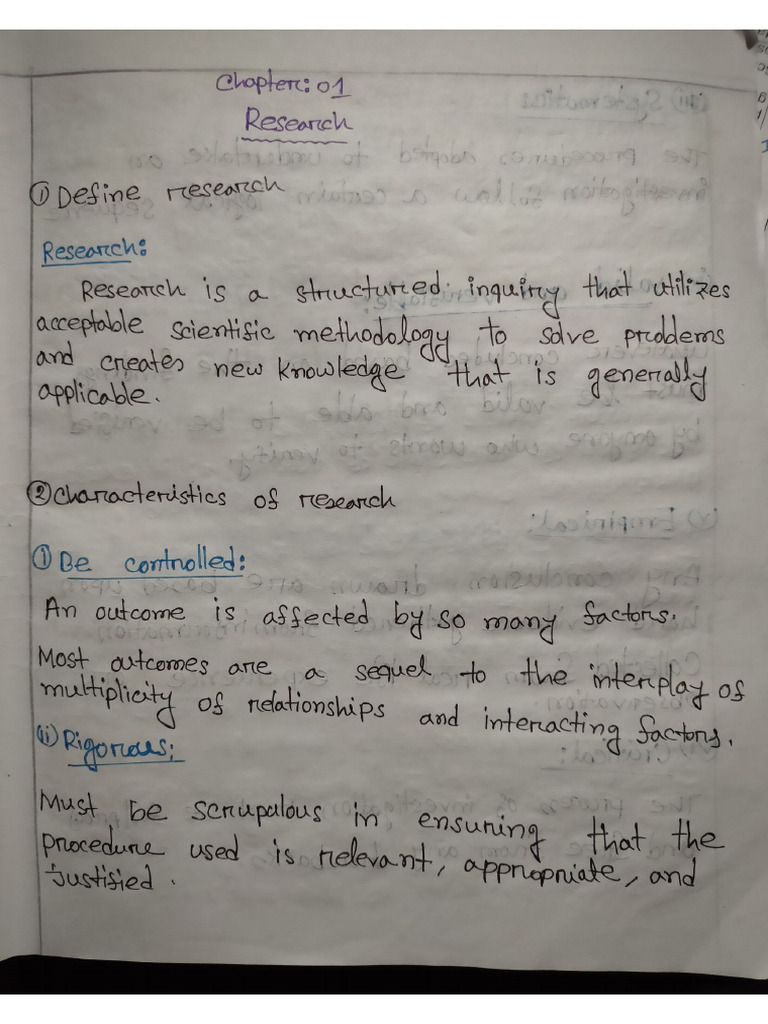 Chapter: 01
Research
① Define research
Research:
Research is a structured inquiry that utilizes
acceptable scientific methodology to solve problems
and creates new knowledge that is generally
applicable.
② Characteristics of research
① Be controlled:
An outcome is affected by so many factors.
Most outcomes are a sequel to the interplay of
multiplicity of relationships and interacting factors.
(ii) Rigorous:
Must be scrupulous in ensuring that the
procedure used is relevant, appropriate, and
justified.